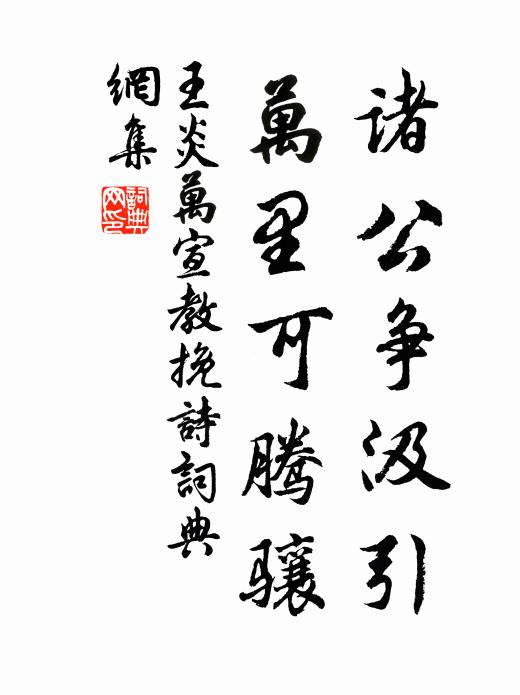 诸公争汲引
萬里可腾骧
王炎萬宣教挽詩詞典
網集
詞典網印